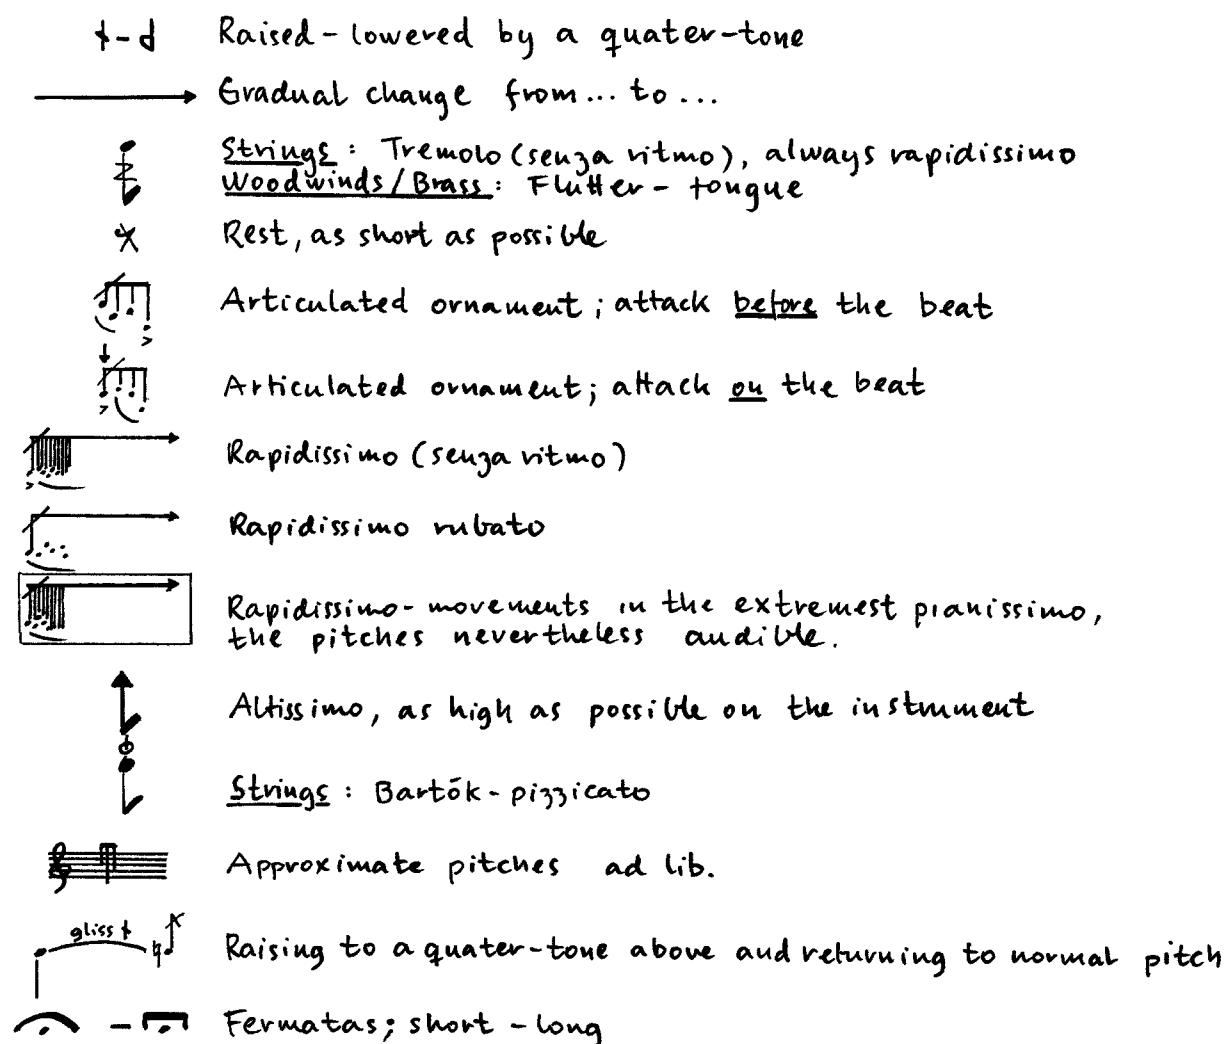 Raised - lowered by a quater-tone
Gradual change from... to...
Strings: Tremolo (senza ritmo), always rapidissimo
Woodwinds/Brass: Flutter-tongue
Rest, as short as possible
Articulated ornament; attack before the beat
Articulated ornament; attack on the beat
Rapidissimo (senza ritmo)
Rapidissimo rubato
Rapidissimo-movements in the extremest pianissimo,
the pitches nevertheless audible.
Altissimo, as high as possible on the instrument
Strings: Bartók-pizzicato
Approximate pitches ad lib.
gliss
Raising to a quater-tone above and returning to normal pitch
Fermatas; short - long